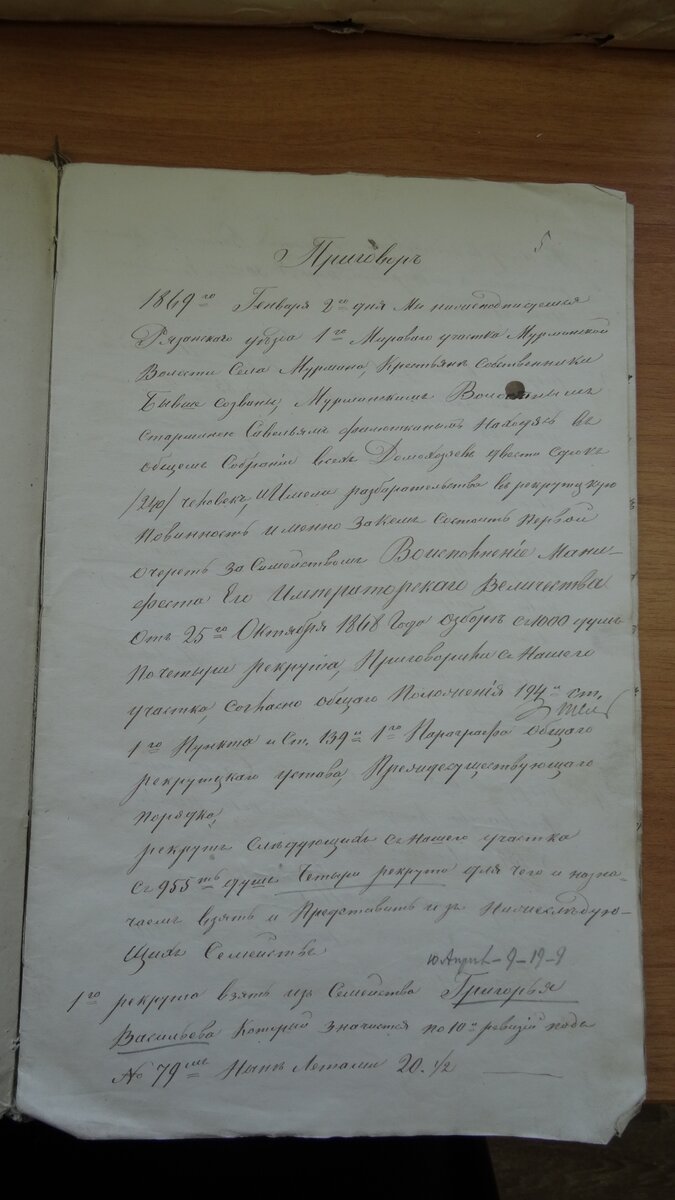 5
Приговоръ
1869го Генваря 2го дня Мы нижеподписуемыя
Рязанскаго уѣзда 1го Мироваго участка Мурминской
Волости Села Мурмина, Крестьянъ Собственники
Бывше созваны, Мурминскимъ Волостнымъ
Старшиною Савельямъ Филоткинымъ Находясь въ
общемъ Собраніи всехъ Домохозяевъ двести сорокъ
/240/ человекъ, и Имели разбирательства въ рекрутцкую
Повинность именно за кемъ Состоитъ Первой
очереть за Семействомъ Воисполненіе Мани-
феста Его Императорскаго Величества
Отъ 25го Октября 1868 Года озборъ Съ 1000 душъ
По четыри рекрута, Приговорили Съ Нашего
участка, Согласно общаго Положенія 194й ст.
1го Пункта и Ст. 139й 1го Параграфа общаго
рекрутцкаго устава, Преждесуществующаго
Порядка,
рекрутъ Следующихъ Съ Нашего участка
Съ 955ть душъ Четыри рекрута для чего и назна-
чаемъ взять и Представить изъ Нижеследую-
щихъ Семействъ
1го рекрута взять изъ Семейства Григорья
Васильева Который значится по 10й ревизіи подъ
№ 79мъ Нынѣ Летами 20. 1/2